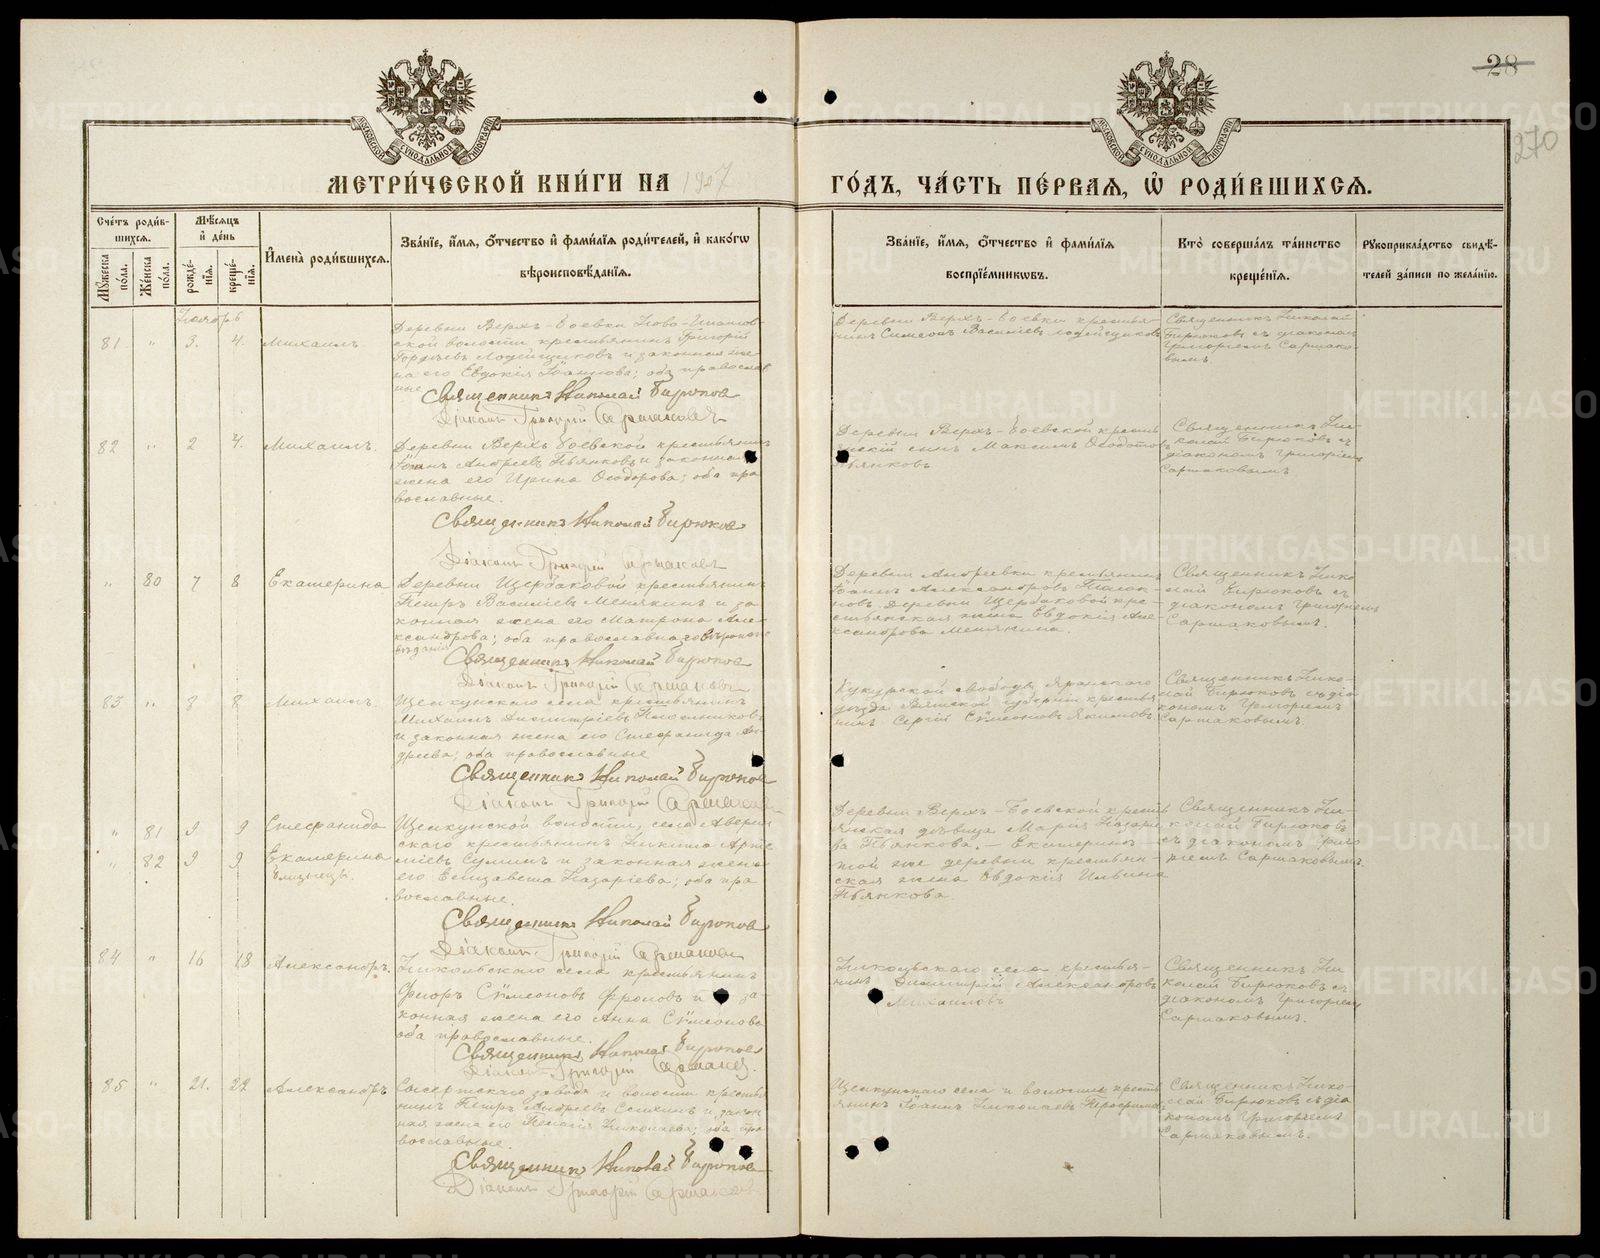 28
270
МЕТРИ́ЧЕСКОЙ КНИ́ГИ НА 1907
ГО́ДЪ, ЧА́СТЬ ПЕ́РВАЯ, Ѡ РОДИ́ВШИХСЯ.
Сче́тъ роди́в-
шихся.
Мѣ́сяцъ
и де́нь
Му́жеска по́ла.
Же́нска по́ла.
рожде́-
нія.
креще́-
нія.
Имена̀ роди́вшихся.
Зва́нїе, и́мя, ѻ́тчество и фами́лїя роди́телей, и како́гѡ
вѣроисповѣ́данїя.
Зва́нїе, и́мя, ѻ́тчество и фами́лїя
воспрїе́мникѡвъ.
Кто̀ соверша́лъ та́инство
креще́нїя.
Рукоприкла́дство свидѣ́-
телей за́писи по жела́нїю.
Ноябрь
81 " 3. 4. Михаилъ.
Деревни Верхъ-Боевки Ново-Ипатов-
ской волости крестьянинъ Григорій
Гордѣевъ Лодейщиковъ и законная же-
на его Евдокія Іоаннова; оба православ
ные
Священникъ Николай Бирюковъ
Діаконъ Григорій Саршаковъ
Деревни Верхъ-Боевки крестья-
нинъ Симеонъ Василіевъ Лодейщиковъ
Священникъ Николай
Бирюковъ съ діакономъ
Григоріемъ Саршако-
вымъ
82 " 2 4. Михаилъ.
Деревни Верхъ Боевской крестьянинъ
Іоаннъ Андреевъ Пьянковъ и законная
жена его Ирина Ѳеодорова; оба пра
вославные.
Священникъ Николай Бирюковъ
Діаконъ Григорій Саршаковъ
Деревни Верхъ-Боевской крестьян
скій сынъ Максимъ Ѳеодотовъ
Пьянковъ
Священникъ Ни-
колай Бирюковъ съ
діакономъ Григоріемъ
Саршаковымъ
" 80 7 8 Екатерина
Деревни Щербаковой крестьянинъ
Петръ Василіевъ Менякинъ и за
конная жена его Матрона Але-
ксандрова; оба православнаго вѣроиспо
вѣданія
Священникъ Николай Бирюковъ
Діаконъ Григорій Саршаковъ
Деревни Андреевки крестьянинъ
Іоаннъ Александровъ
новъ. Деревни Щербаковой кре-
стьянская жена Евдокія Але-
ксандрова Менякина.
Священникъ Нико-
лай Бирюковъ съ
діакономъ Григоріемъ
Саршаковымъ.
83 " 8 8 Михаилъ.
Щелкунскаго села крестьянинъ
Михаилъ Димитріевъ
и законная жена его Стефанида Ан-
дреева; оба православные
Священникъ Николай Бирюковъ
Діаконъ Григорій Саршаковъ
Кукарской слободы, Яранскаго
уѣзда Вятской губерніи крестья
нинъ Сергій Сѵмеоновъ Якимовъ
Священникъ Нико-
лай Бирюковъ съ діа-
кономъ Григоріемъ
Саршаковымъ.
" 81 9 9 Стефанида
" 82 9 9 Екатерина
близнецы.
Щелкунской волости, села Аверин-
скаго крестьянинъ Никита Арте
міевъ Сулинъ и законная жена
его Елизавета Назаріева; оба пра
вославные.
Священникъ Николай Бирюковъ
Діаконъ Григорій Саршаковъ
Деревни Верхъ-Боевской кресть
янская дѣвица Марія Назаріе
ва Пьянкова. — Екатерины
той же деревни крестьян-
ская жена Евдокія Ильина
Пьянкова
Священникъ Ни-
колай Бирюковъ
съ діакономъ Григо
ріемъ Саршаковымъ.
84 " 16 18 Александръ.
Никольскаго села крестьянинъ
Ѳеодоръ Сѵмеоновъ Фроловъ и за-
конная жена его Анна Сѵмеонова
оба православные.
Священникъ Николай Бирюковъ
Діаконъ Григорій Саршаковъ.
Никольскаго села крестья-
нинъ Димитрій Александровъ
Михайловъ
Священникъ Ни
колай Бирюковъ съ
діакономъ Григоріемъ
Саршаковымъ.
85 " 21. 22 Александръ
Сысертскаго завода и волости крестья
нинъ Петръ Андреевъ и закон
ная жена его Николаева; оба пра
вославные.
Священникъ Николай Бирюковъ
Діаконъ Григорій Саршаковъ
Щелкунскаго села и волости кресть
янинъ Іоаннъ Николаевъ
Священникъ Нико-
лай Бирюковъ съ діа
кономъ Григоріемъ
Саршаковымъ.